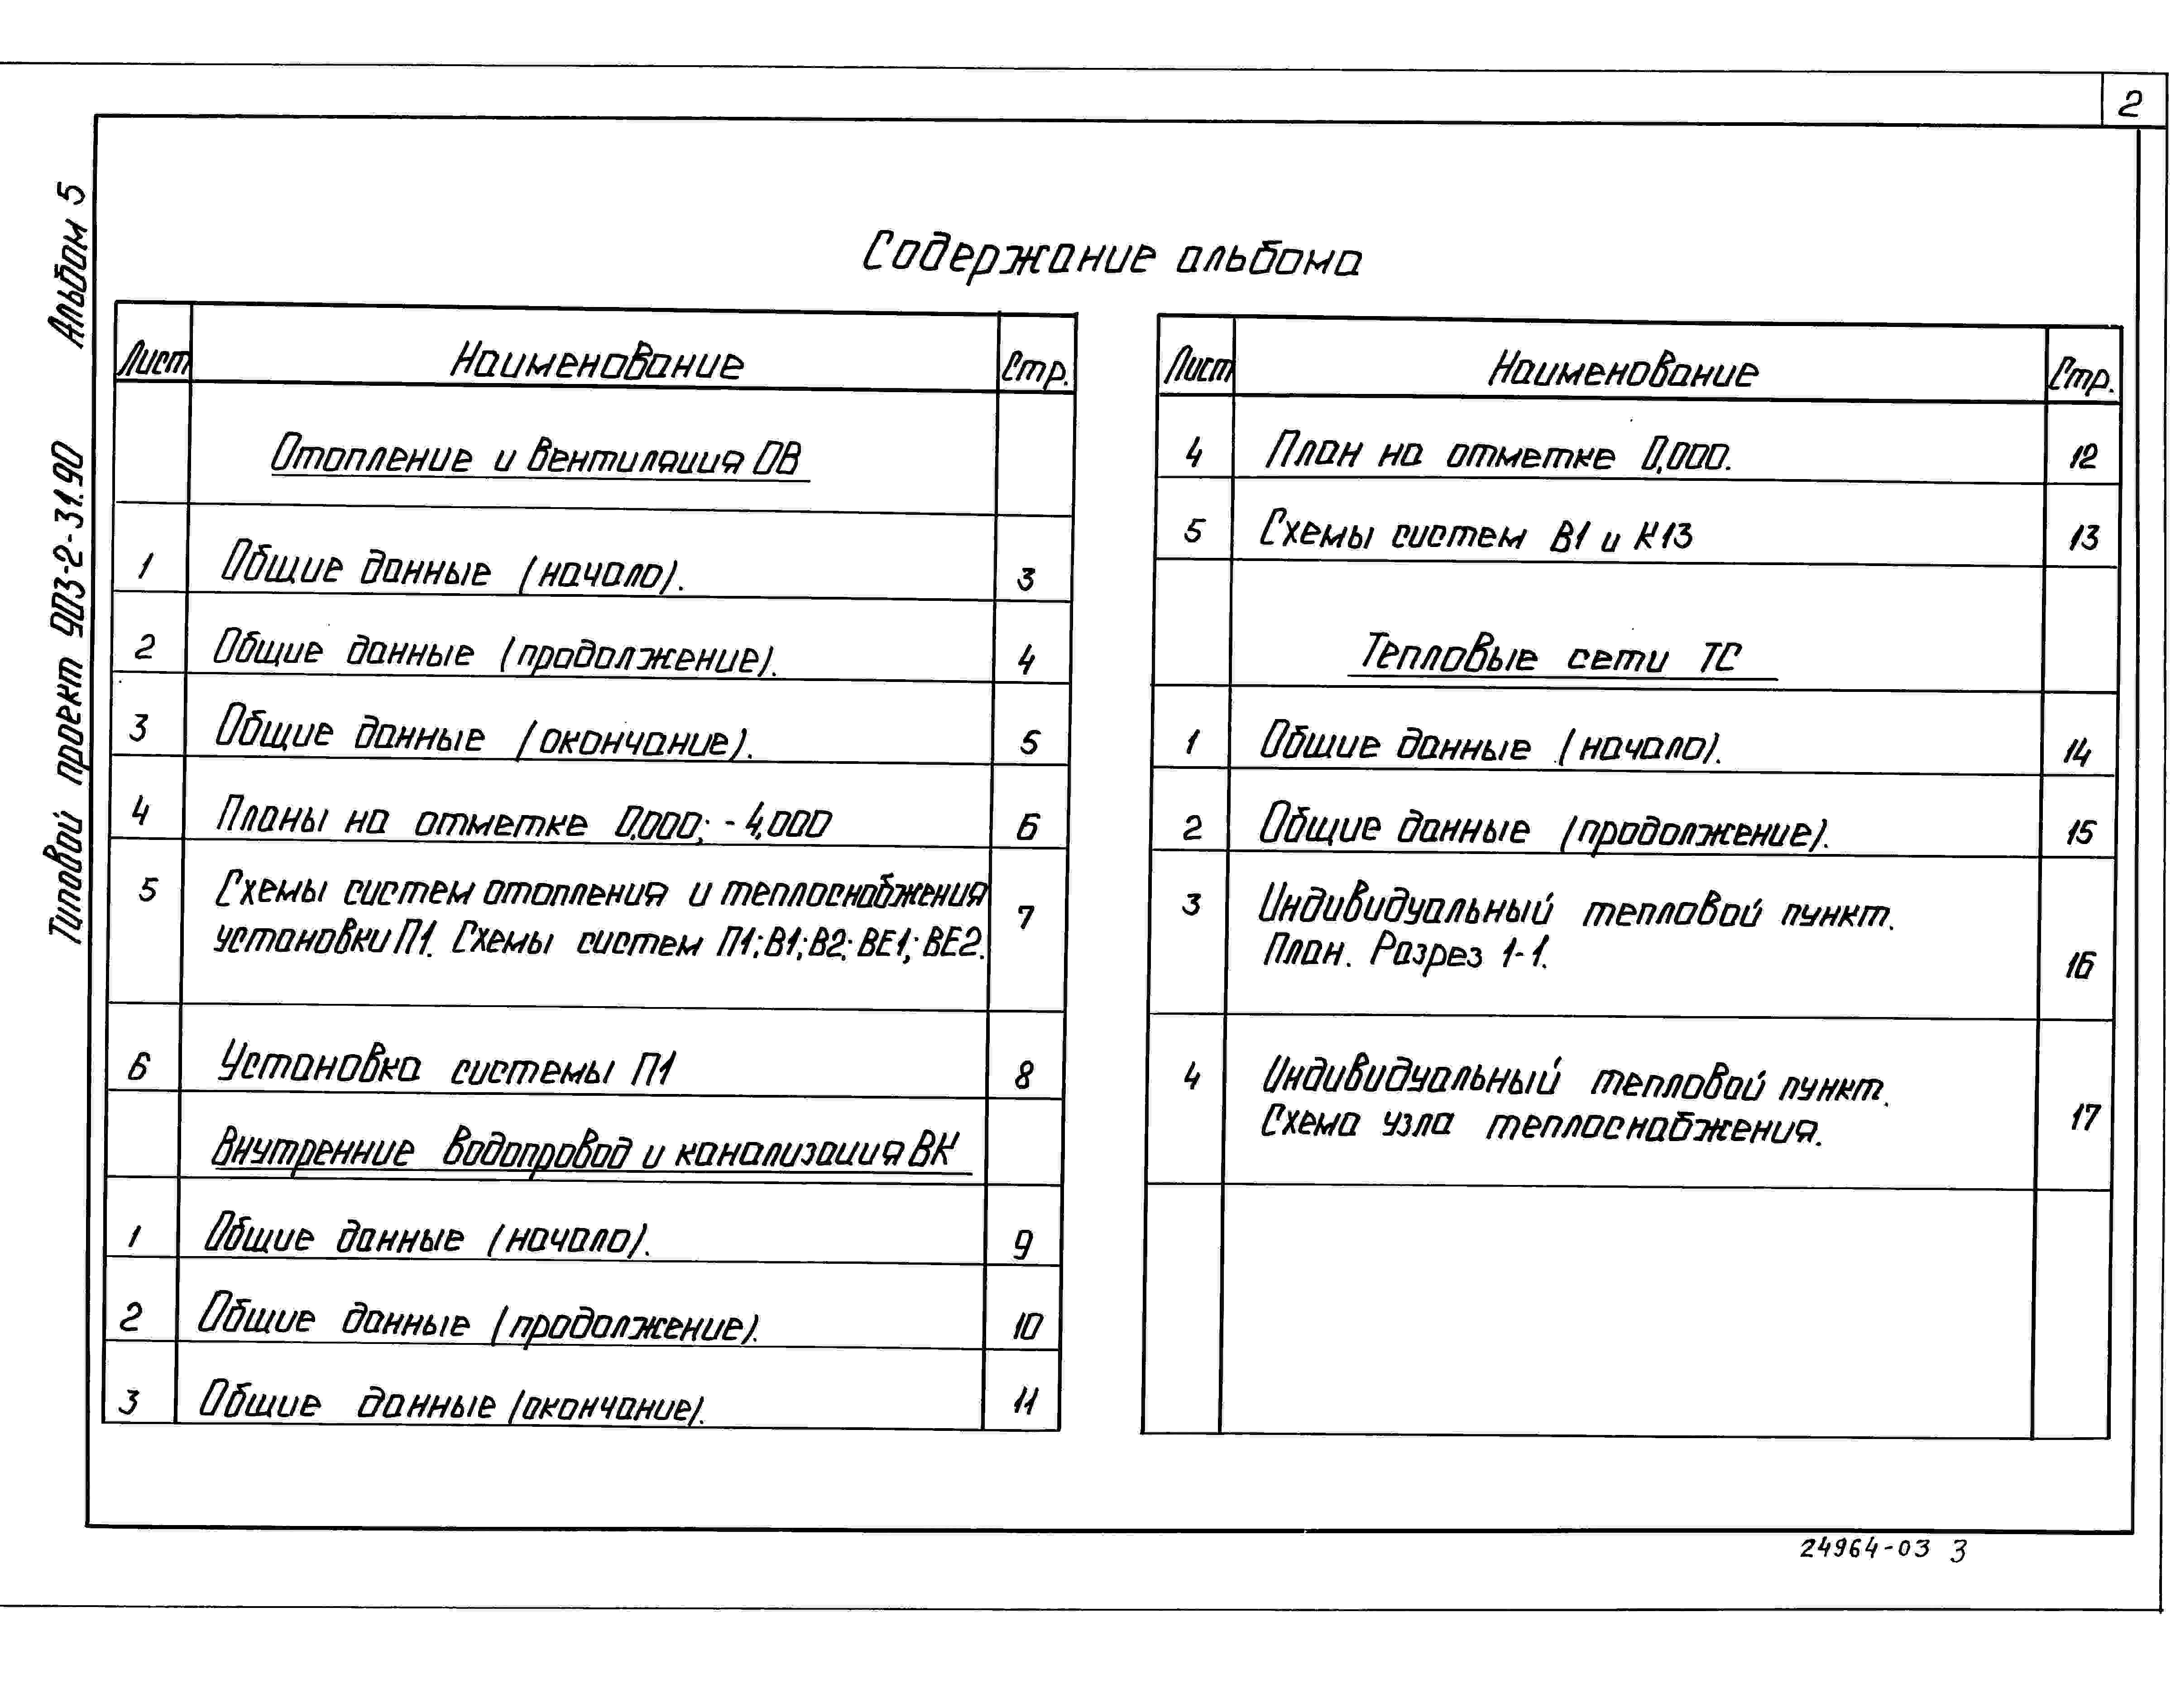 2
Альбом 5
Типовой проект 903-2-31.90
Содержание альбома
Лист Наименование Стр.
Отопление и вентиляция ОВ
1 Общие данные (начало). 3
2 Общие данные (продолжение). 4
3 Общие данные (окончание). 5
4 Планы на отметке 0,000; -4,000 6
5 Схемы систем отопления и теплоснабжения 7
установки П1. Схемы систем П1; В1; В2; ВЕ1; ВЕ2.
6 Установка системы П1 8
Внутренние водопровод и канализация ВК
1 Общие данные (начало). 9
2 Общие данные (продолжение). 10
3 Общие данные (окончание). 11
Лист Наименование Стр.
4 План на отметке 0,000. 12
5 Схемы систем В1 и К13 13
Тепловые сети ТС
1 Общие данные (начало). 14
2 Общие данные (продолжение). 15
3 Индивидуальный тепловой пункт.
План. Разрез 1-1. 16
4 Индивидуальный тепловой пункт.
Схема узла теплоснабжения. 17
24964-03 3